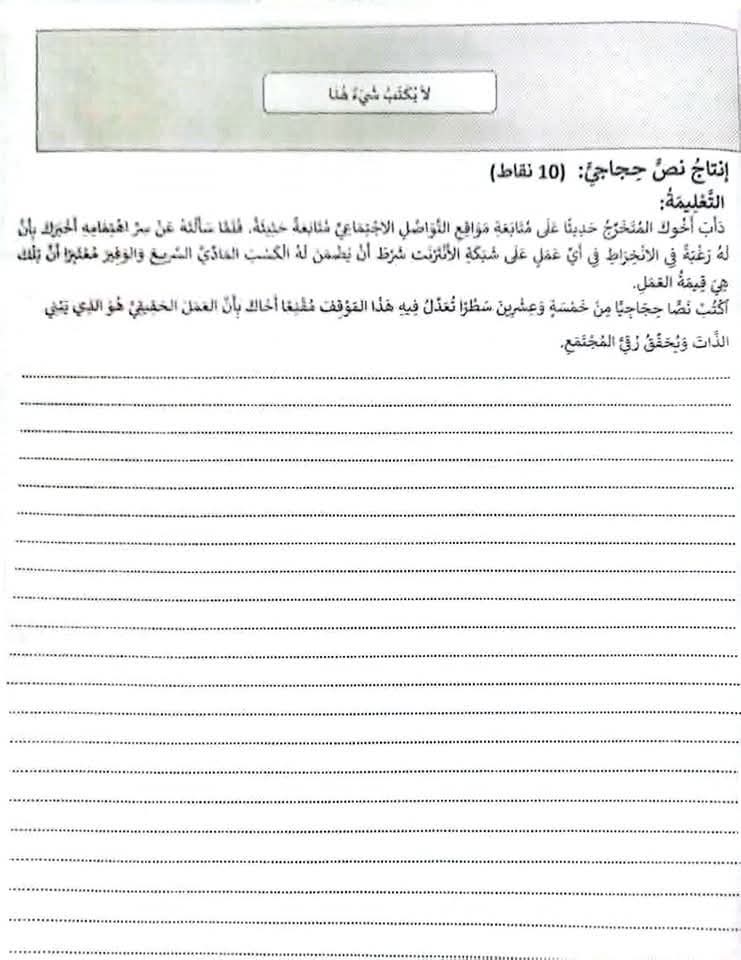 لاَ يُكْتَبُ شَيْءٌ هُنَا
إِنتاجُ نصٍّ حِجاجيٍّ: (10 نقاط)
التَّعْلِيمَةُ:
دَأَبَ أَخُوك المُتَخَرِّجُ حَدِيثًا عَلَى مُتَابَعَةِ مَوَاقِعِ التَّوَاصُلِ الاجْتِمَاعِيِّ مُتَابَعَةً حَثِيثَةً. فَلَمَّا سَأَلْتَهُ عَنْ سِرِّ اهْتِمَامِهِ أَخْبَرَك بِأَنَّ
لَهُ رَغْبَةً فِي الانْخِرَاطِ فِي أَيِّ عَمَلٍ عَلَى شَبَكَةِ الأَنْتَرْنَت شَرْطَ أَنْ يَضْمَنَ لَهُ الْكَسْبَ المَادِّيَّ السَّرِيعَ وَالوَفِيرَ مُعْتَبِرًا أَنَّ تِلْكَ
هِيَ قِيمَةُ العَمَلِ.
اُكْتُبْ نَصًّا حِجَاجِيًّا مِنْ خَمْسَةٍ وَعِشْرِينَ سَطْرًا تُعَدِّلُ فِيهِ هَذَا المَوْقِفَ مُقْنِعًا أَخَاكَ بِأَنَّ العَمَلَ الحَقِيقِيَّ هُوَ الذِي يَبْنِي
الذَّاتَ وَيُحَقِّقُ رُقِيَّ المُجْتَمَعِ.